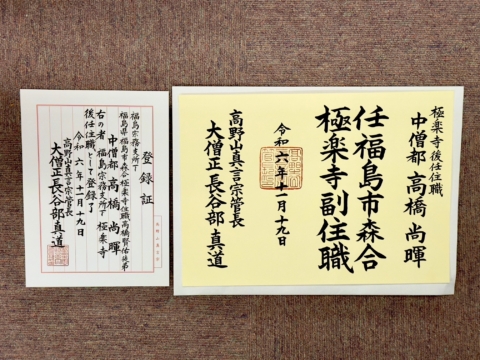 極楽寺後任住職
中僧都 高橋 尚暉
任福島市森合
極楽寺副住職
令和六年十一月十九日
高野山真言宗管長
大僧正長谷部真道
登録証
福島宗務支所下
福島県福島市森合 極楽寺住職高橋賢佑徒弟
中僧都 高橋 尚暉
右の者 福島宗務支所下 極楽寺
後任住職として登録了
令和六年十一月十九日
高野山真言宗管長
大僧正長谷部真道